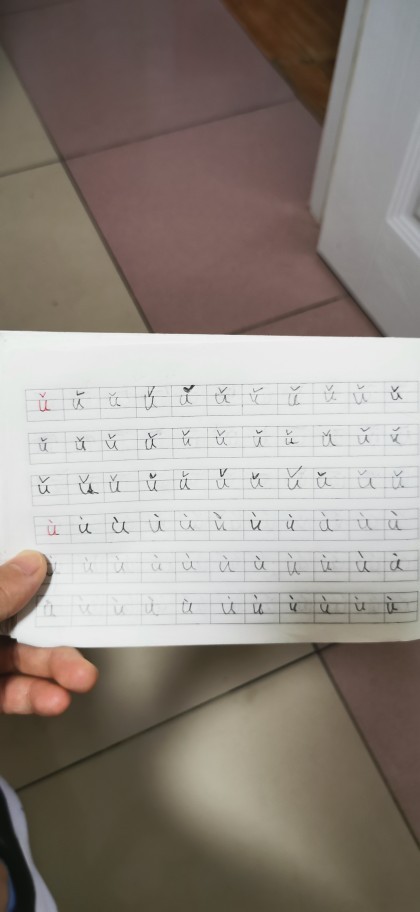 ǔ ǔ ǔ ǔ ǔ ǔ ǔ ǔ ǔ ǔ ǔ
ǔ ǔ ǔ ǔ ǔ ǔ ǔ ǔ ǔ ǔ ǔ
ǔ ǔ ǔ ǔ ǔ ǔ ǔ ǔ ǔ ǔ ǔ
ù ù ù ù ù ù ù ù ù ù ù
ù ù ù ù ù ù ù ù ù ù ù
ù ù ù ù ù ù ù ù ù ù ù